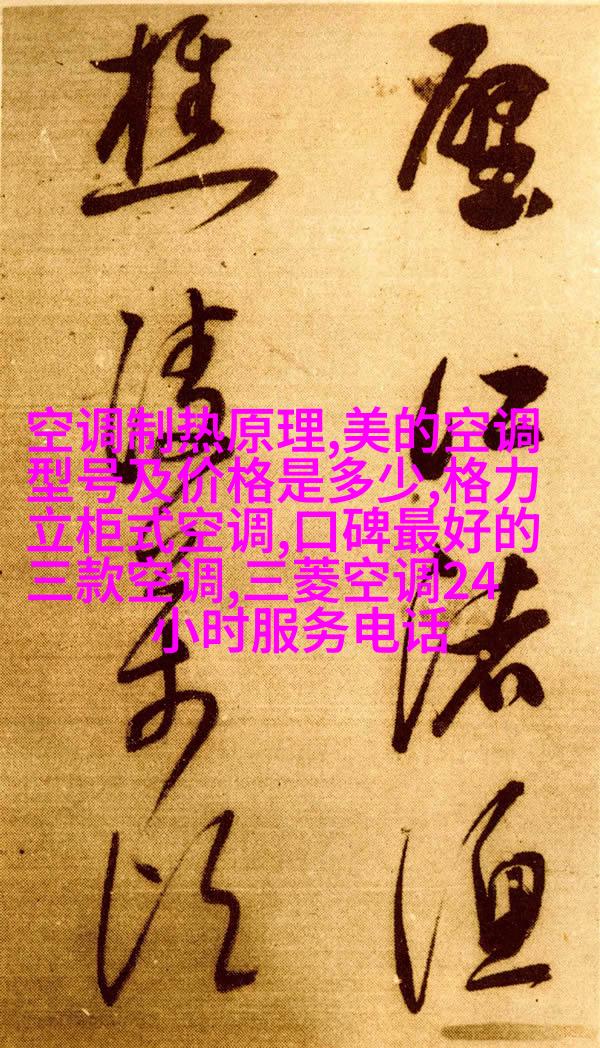 空调制热原理,美的空调
型号及价格是多少,格力
立柜式空调,口碑最好的
三款空调,三菱空调24
小时服务电话
江渚渔
樵